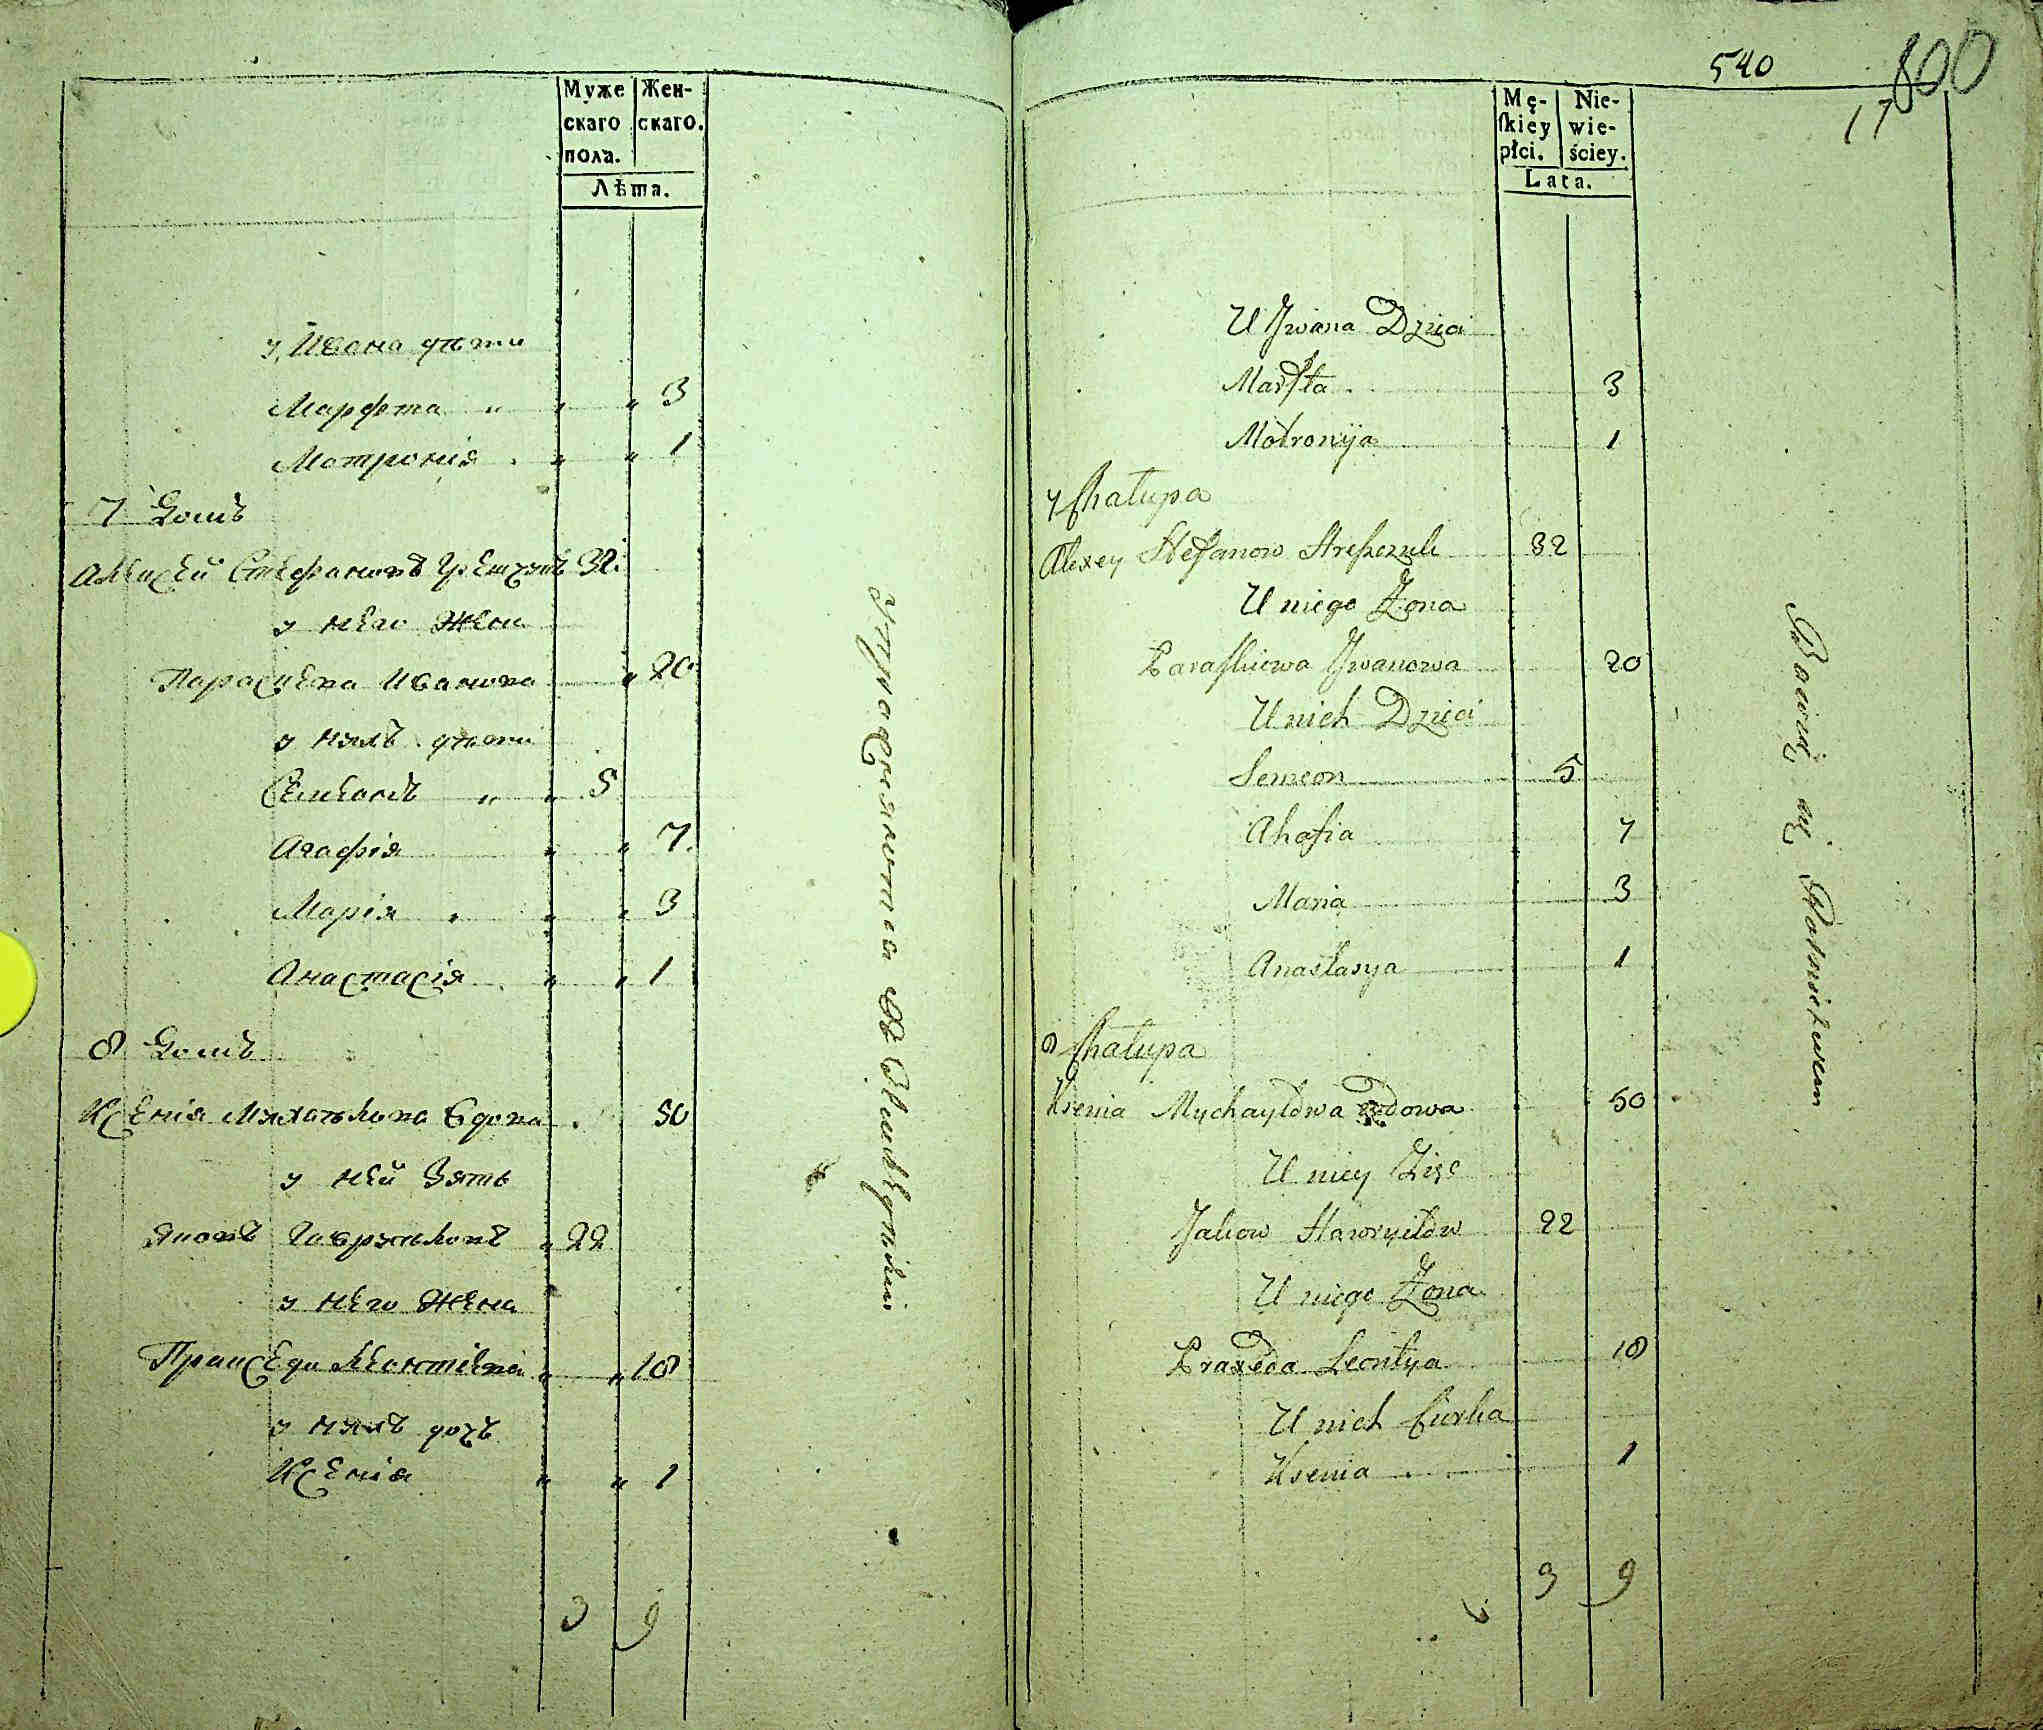 Муже
скаго
пола.
Жен-
скаго.
Лѣта.
у Ивана дѣти
Марфета " " " 3
Мотронія . " " 1
7 Домъ
Алексѣй Стефановъ 32
у него Жена
Параскева Иванова " 20
у нихъ дѣти
Семеонъ " " 5
Агафія " " 7
Марія " " " 3
Анастасія " " 1
8 Домъ
Ксенія Михайлова Вдова 50
у ней Зять
Яковъ Гаврыловъ " 22
у него Жена
Пракседа Леонтіева " " 18
у нихъ дочь
Ксенія " " 1
3 9
Упражняются въ Земледѣліи
540
800
17
Mę-
ſkiey
płci.
Nie-
wie-
ściey.
Lata.
U Jwana Dzieci
Marfta 3
Motronija 1
7 Chałupa
Alexey Stefanow 32
U niego Żona
Paraſkiewa Jwanowa 20
U nich Dzieci
Semeon 5
Ahafia 7
Maria 3
Anastasya 1
8 Chałupa
Ksenia Mychayłowa Wdowa 50
U niey Zięć
Jakow Hawryłow 22
U niego Żona
Praxeda Leontya 18
U nich Curka
Ksenia 1
3 9
Bawią się Rolnictwem